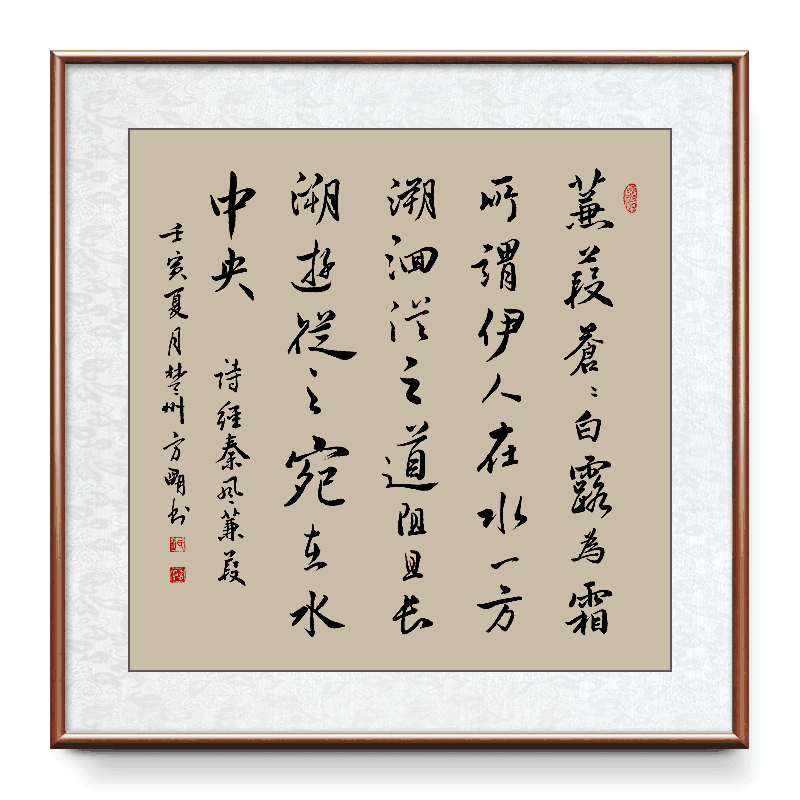 蒹葭蒼々白露為霜
所謂伊人在水一方
溯洄從之道阻且长
溯遊從之宛在水
中央
詩經秦风蒹葭
壬寅夏月楚州方明书